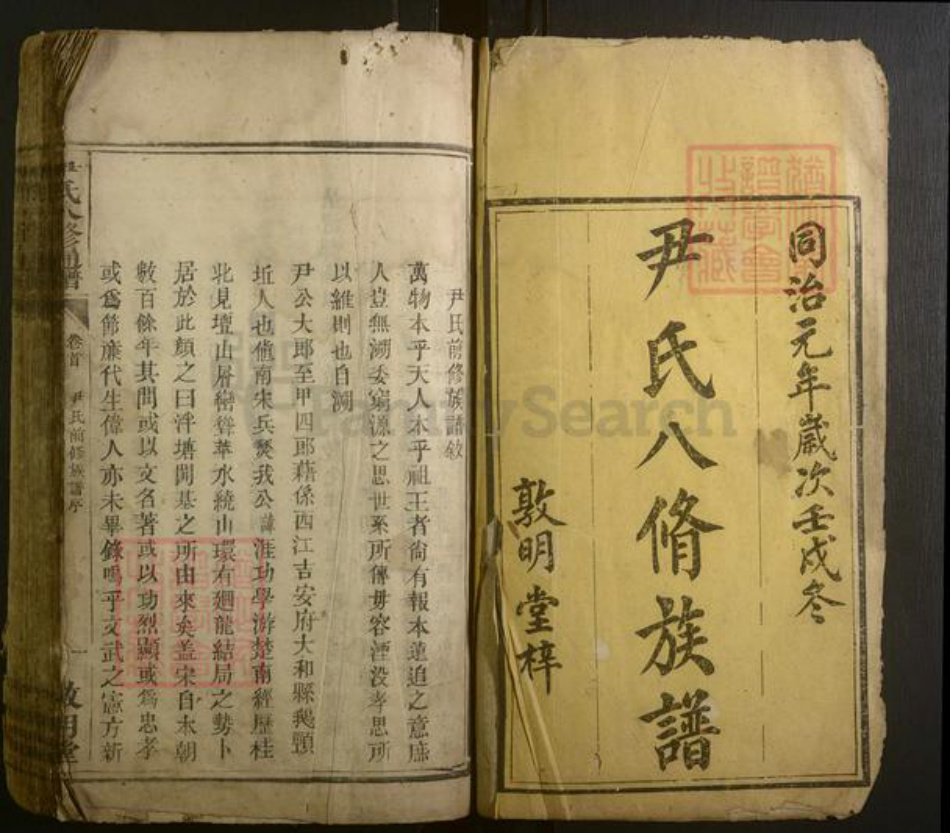 同治元年歲次壬戌冬
尹氏八脩族譜
敦明堂梓
尹氏前修族譜敘
萬物本乎天人本乎祖王者尙有報本追之意庶
人豈無溯委窮源之思世系所傳毋容湮没孝思所
以維則也自溯
尹公大郎至甲四郎藉係西江吉安府大和縣鵝頸
坵人也値南宋兵燹我公諱涯功學游楚南經歷桂
北見壇山層巒聳華水繞山環有廻龍結局之勢卜
居於此顏之曰泮塘開基之所由來矣盖宋自本朝
數百餘年其間或以文名著或以功烈顯或爲忠孝
或爲節廉代生偉人亦未畢錄嗚乎文武之憲方新
氏八修通譜
卷首
尹氏前修族譜序
一
敦明堂
FamilySearch
譜學會
收藏